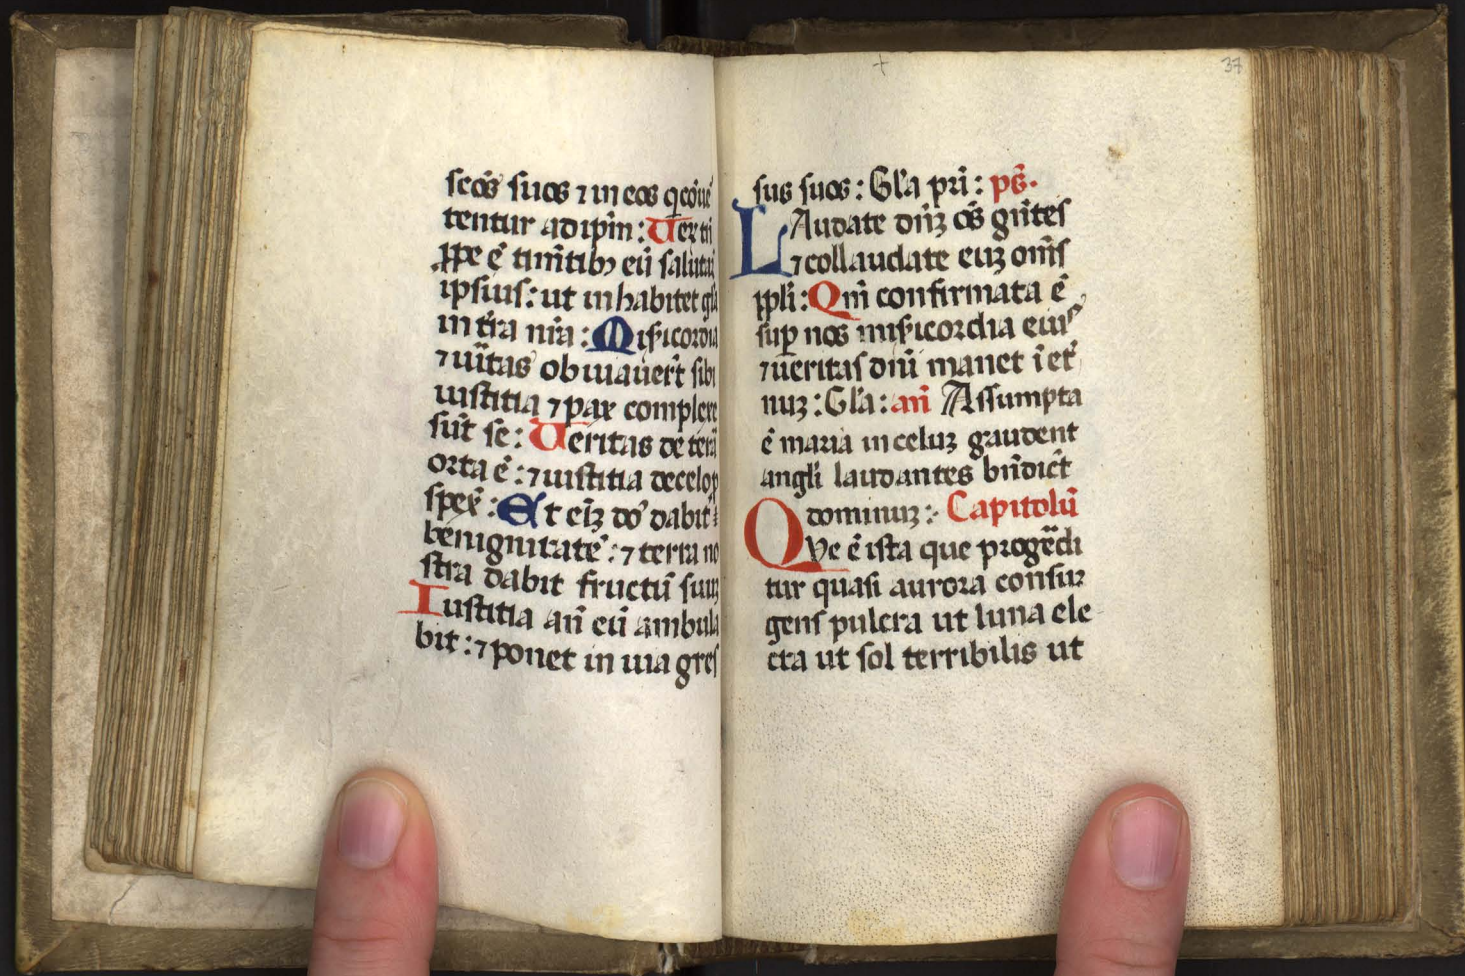 scōs suos ⁊ in eos q̄ cōuẽ
tentur ad ip̄m : Ver tñ
ꝓpe ē timẽtibꝫ eū salutaꝫ
ipsius : ut inhabitet gl̄a
in tr̄a nr̄a : Mis̄icordia
⁊ uītas obuiauer̄t sibi
iustitia ⁊ pax complexe
sūt se : Veritas de terā
orta ē : ⁊ iustitia de celo ꝓ
spex̄ : Et eīꝫ dō dabit
benignitatē : ⁊ terra no
stra dabit fructū suuꝫ
Iustitia añ eū ambula
bit : ⁊ ponet in uia gres
37
sus suos : Gl̄a pr̄i : ps̄.
LAudate dñꝫ oẽs gñtes
⁊ collaudate euꝫ om̄s
ppl̄i : Qm̄ confirmata ē
suꝑ nos mis̄icordia eiꝰ
⁊ ueritas dñi manet ī et̾
nuꝫ : Gl̄a : añ Assumpta
ē maria in celuꝫ gaudent
angl̄i laudantes bñdict̄
dominuꝫ : Capitolū
QVe ē ista que progẽdi
tur quasi aurora consur
gens pulcra ut luna ele
cta ut sol terribilis ut